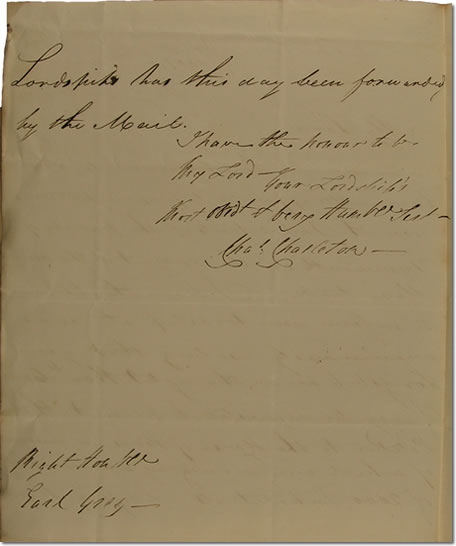 Lordship's has this day been forwarded
by the Mail.
I have the honour to be
My Lord Your Lordship's
Most Obdt & very Humble Sert
Chas. Charleton
Right Honble
Earl Grey